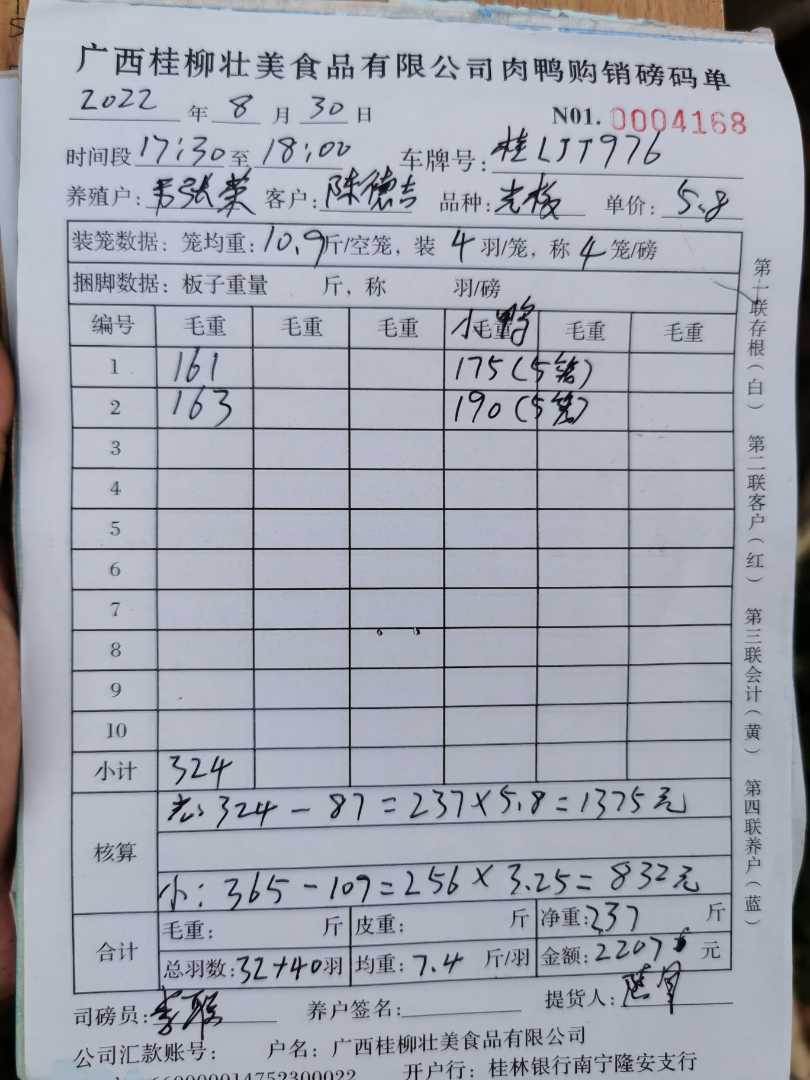 广西桂柳壮美食品有限公司肉鸭购销磅码单
2022 年 8 月 30 日 N01. 0004168
时间段 17:30 至 18:00 车牌号: 桂LJT976
养殖户: 张荣 客户: 陈德吉 品种: 单价: 5.8
装笼数据: 笼均重: 10.9 斤/空笼, 装 4 羽/笼, 称 4 笼/磅
捆脚数据: 板子重量 斤, 称 羽/磅
编号 毛重 毛重 毛重 小鸭 毛重 毛重 毛重
1 161 175(5笼)
2 163 190(5笼)
3
4
5
6
7
8
9
10
小计 324
核算 324 - 87 = 237 × 5.8 = 1375元
小: 365 - 109 = 256 × 3.25 = 832元
合计 毛重: 斤 皮重: 斤 净重: 237 斤
总羽数: 32+40 羽 均重: 7.4 斤/羽 金额: 2207 元
司磅员: 养户签名: 提货人:
公司汇款账号: 户名: 广西桂柳壮美食品有限公司
660000014752300022 开户行: 桂林银行南宁隆安支行
第一联存根(白) 第二联客户(红) 第三联会计(黄) 第四联养户(蓝)